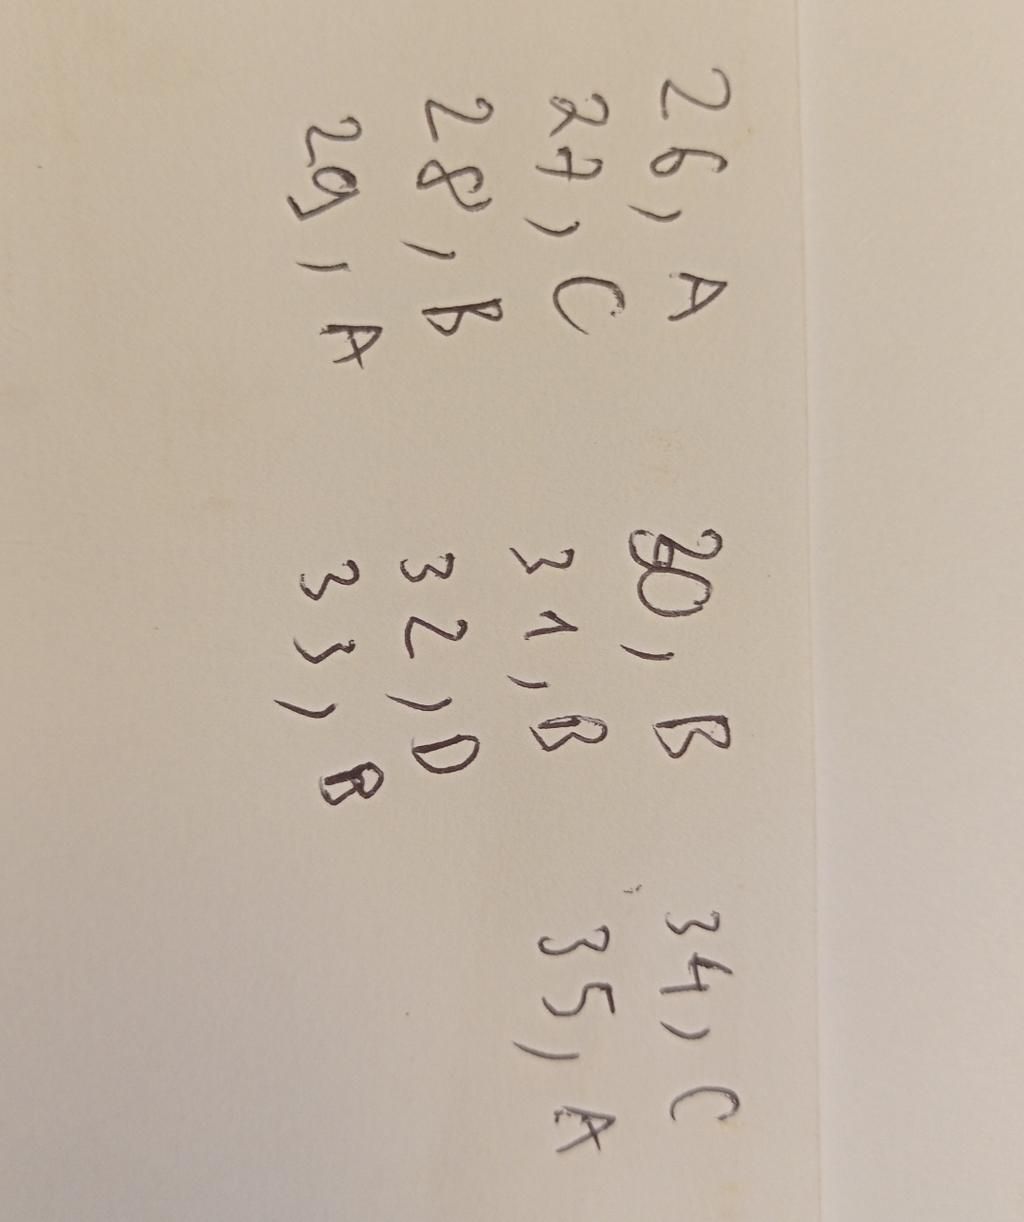 26, A
27, C
28, B
29, A
30, B
31, B
32, D
33, B
34, C
35, A